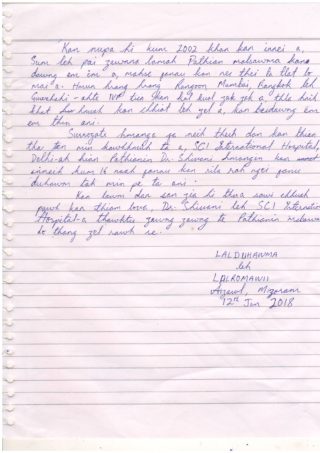 Kan nupa hi kum 2002 khan kan innei a,
Sum leh pai zawnna lamah Pathian malsawmna kan
dawng em em a, mahse fanau kan nei thei ta tlat lo
mai a. Hmun hrang hrang Rangoon Mumbai, Bangkok leh
Guwahati -ahte IVF tia khan kal kual zok zek a, thla hnih
khat hnuah kan chhiat leh zel a, kan beidawng em
em thin ani.
Surrogate hmanga fa neih theih dan kan thian
tha ten min kawhhmuh ta a, SCI International Hospital,
Delhi-ah hian Pathianin Dr. Shivani hmangin kan
innaeih hum 16 naah fanau kan rilru rah ngei fanu
duhawm tak min pe ta ani.
Kan lawm dan san zia hi thira sawi chhuah
pawh kan thiam love. Dr. Shivani leh SCI International
Hospital-a thawktu zawng zawng te Pathianin malsawm
lo thang zel rawh se.
LALDUHAWMA
leh
LALROMAWII
Aizawl, Mizoram
12th Jan 2018